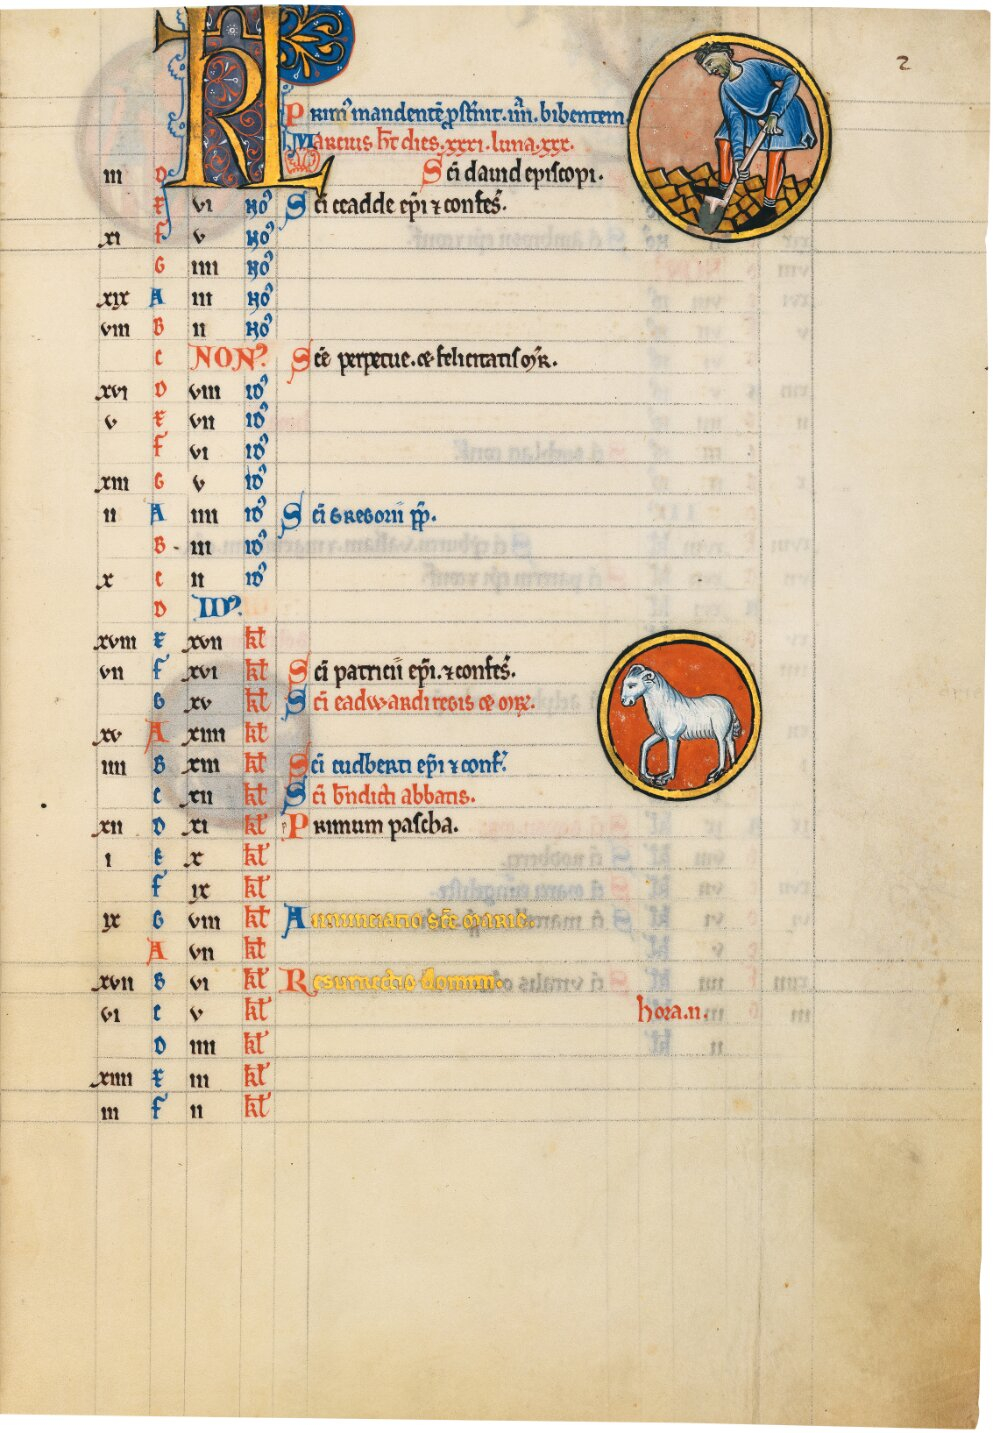 2
KL
Prim' mandentē p̱st̄nit. iiii. bibentem.
Marcius h̄t dies. xxxi. luna. xxx.
iii D Sc̄i dauid episcopi.
E vi No' Sc̄i ceadde ep̄i ⁊ confes̄.
xi F v No'
G iiii No'
xix A iii No'
viii B ii No'
C NON' Sc̄e perpetue. & felicitatis m̄r.
xvi D viii ID'
v E vii ID'
F vi ID'
xiii G v ID'
ii A iiii ID' Sc̄i Gregorii p̄p.
B iii ID'
x C ii ID'
D ID'
xviii E xvii kł
vii F xvi kł Sc̄i patricii ep̄i. ⁊ confes̄.
G xv kł Sc̄i eadwardi regis & m̄r.
xv A xiiii kł
iiii B xiii kł Sc̄i cudberti ep̄i ⁊ conf.
C xii kł Sc̄i b̄ndicti abbatis.
xii D xi kł Primum pascha.
i E x kł
F ix kł
ix G viii kł Annunciatio sc̄e marie.
A vii kł
xvii B vi kł Resurrectio domini.
vi C v kł hora. ii.
D iiii kł
xiiii E iii kł
iii F ii kł